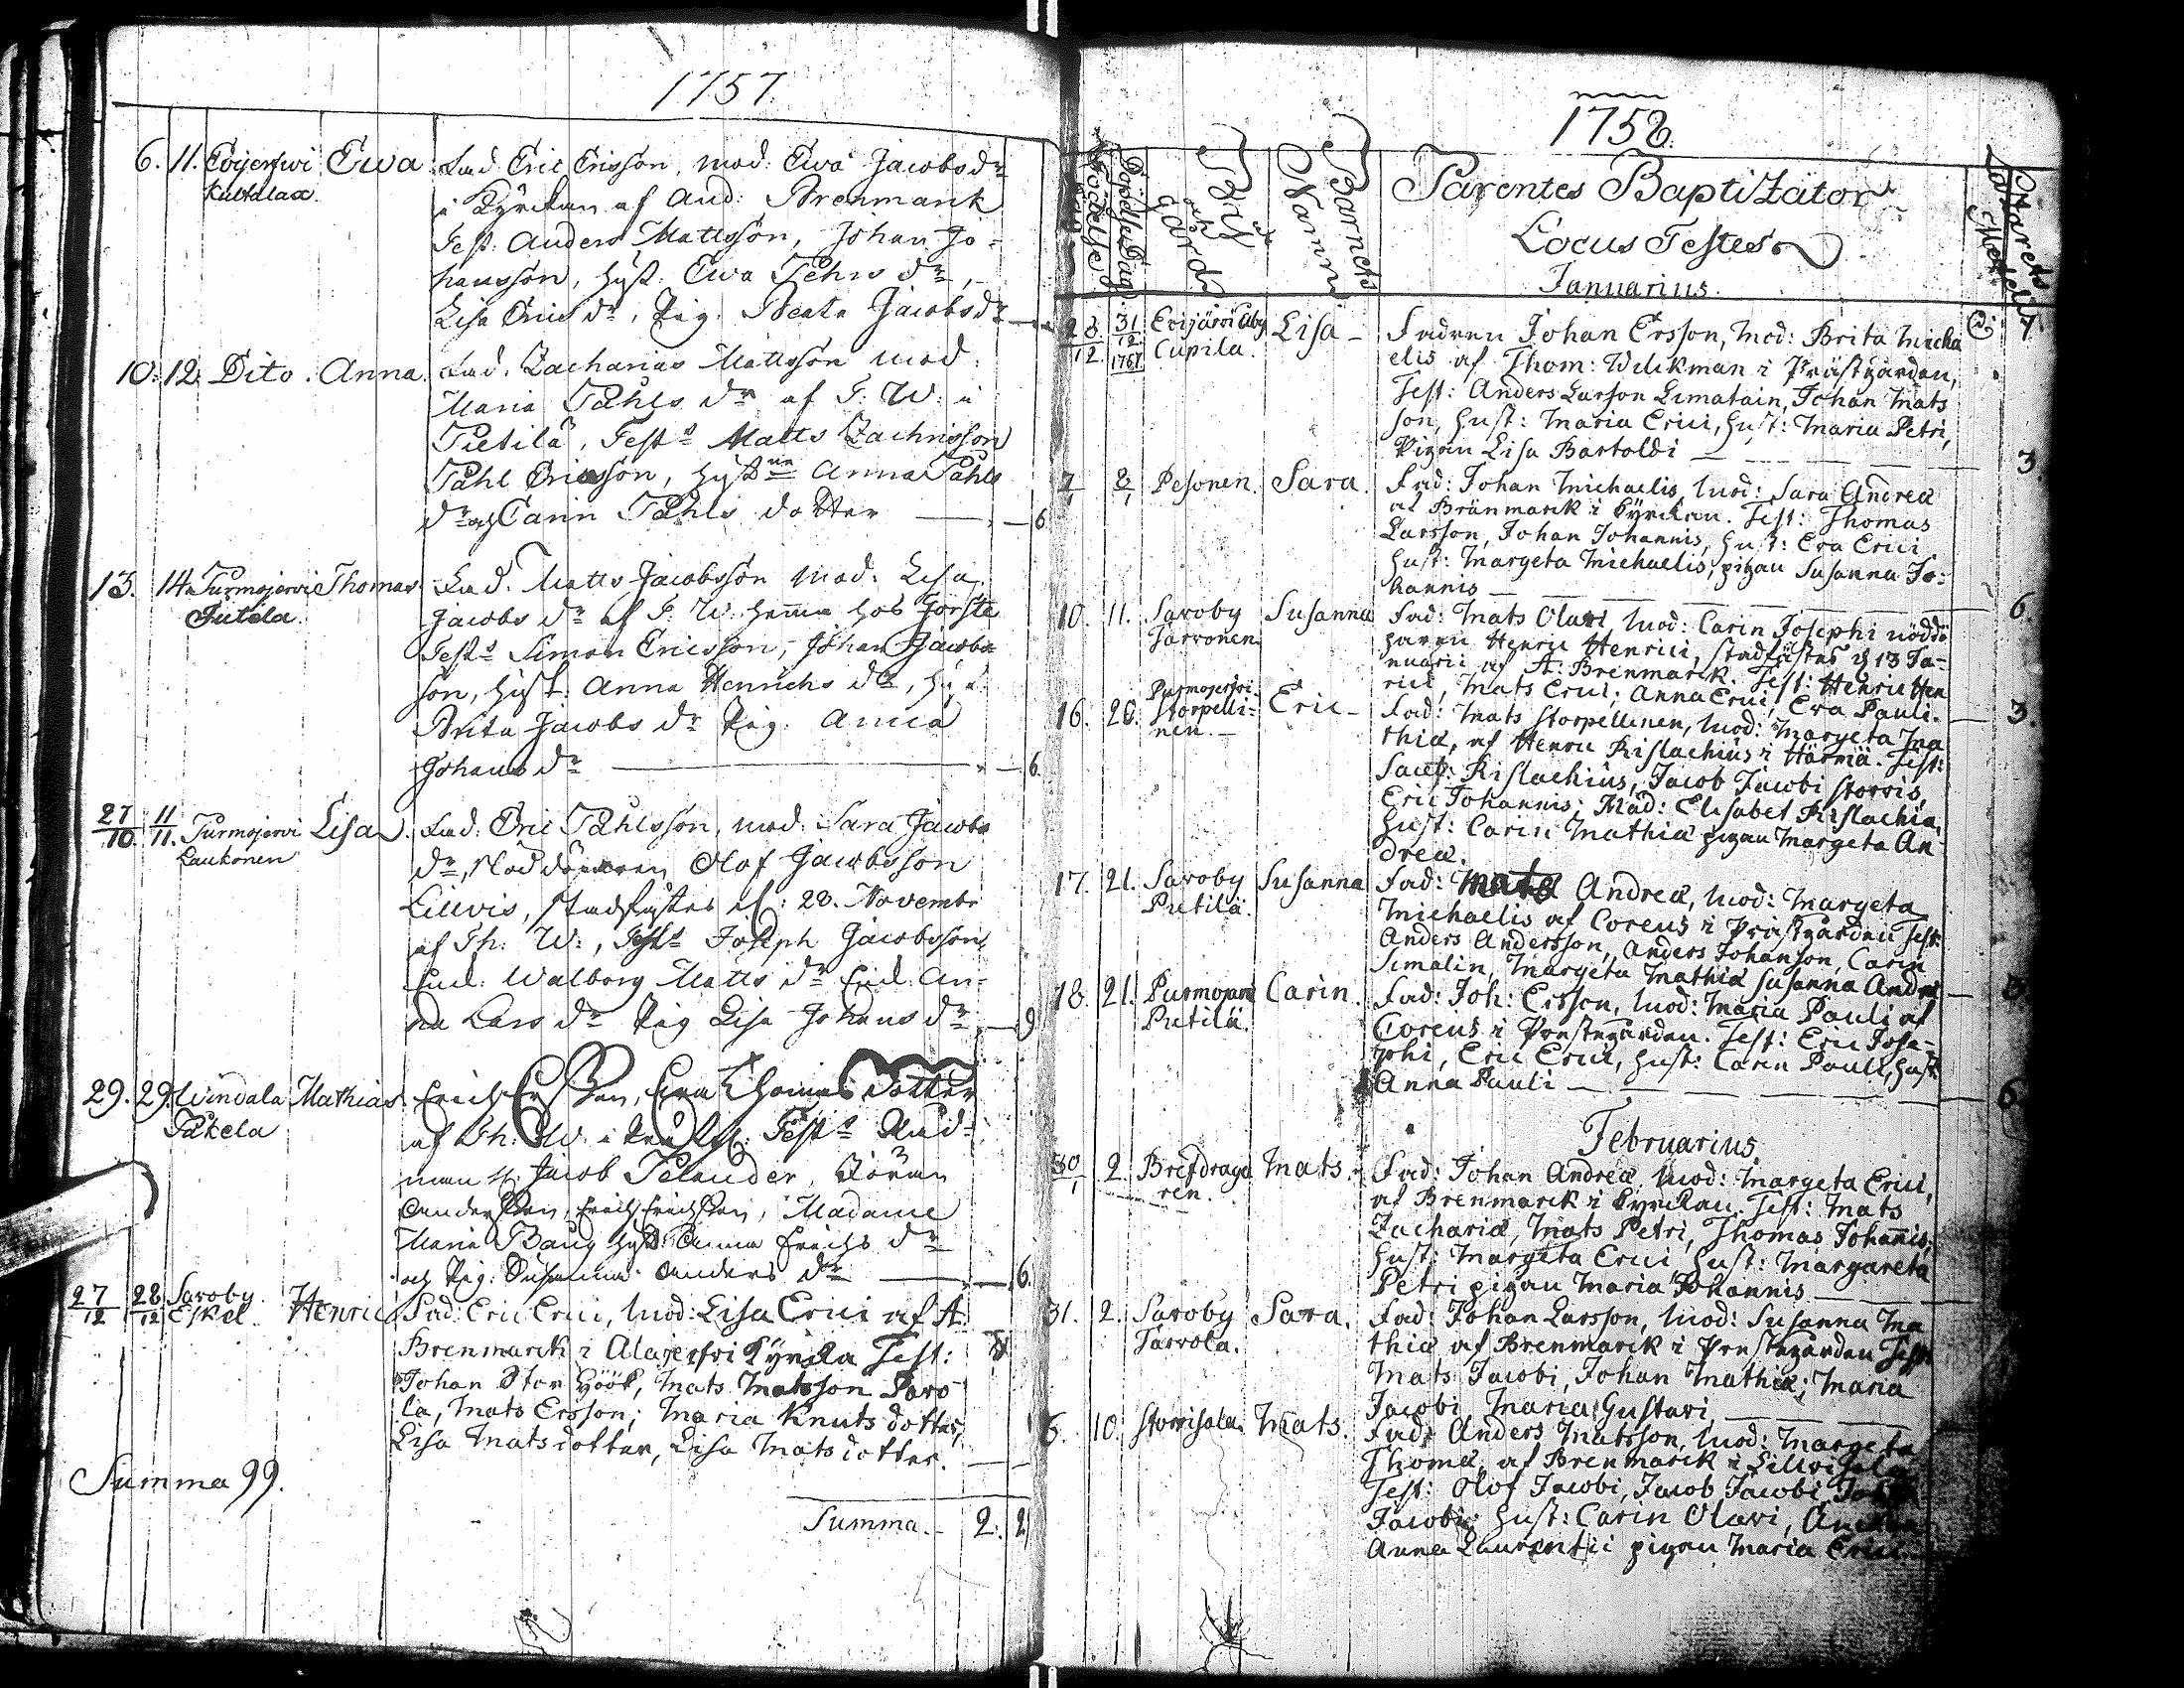 1757.
6. 11. Evijerfwi Ewa Fad Eric Ersson, mod: Ewa Jacobs dr
Kultalax. i Kyrckan af And: Brenmarck
Test: Anders Mattsson, Johan Jo=
hansson, hust. Ewa Pehrs dr,
Lisa Erics dr, Pig. Beata Jacobs dr
10. 12. Dito. Anna. Fad. Zacharias Mattsson mod.
Maria Påhls dr af T: W: i
Pietilä, Test: Matts Zachrisson
Påhl Ericsson, hust Anna Påhls
dr och Carin Påhls dotter — 6
13. 14. Purmojervi Thomas Fad. Matts Jacobsson mod: Lisa
Putila. Jacobs dr af T: W. hemma hos
Test: Simon Ericsson, Johan Jacobs
son, hust: Anna Henrichs dr, hu:
Brita Jacobs dr Pig. Anna
Johans dr — 6.
27/10. 11/11. Purmojervi Lisa. Fad: Eric Påhlsson, mod: Sara Jacobs
Laukonen dr, Nöddöparen Olof Jacobsson
Lillvis, stadfästes d: 28. Novembr
af Th: W:, Test: Joseph Jacobsson
Walborg Matts dr An=
na Lars dr Pig Lisa Johans dr — 9
29. 29. Windala Mathias. Erich Ersson, Thomas dotter
Påkela af Th: W. i Test:
man H. Jacob Pelander, Göran
Andersson, Erich Erichsson, Madame
Maria Baug hust: Anna Erichs dr
och Pig: Susanna Anders dr — 6.
27/12 28/12 Saroby Henric Fad: Eric Erici, Mod: Lisa Erici af A
Eskel. Brenmarck i Alajerfvi Kyrcka Test:
Johan Stor Höök, Mats Matsson Savo
la, Mats Ersson; Maria Knuts dotter,
Lisa Mats dotter, Lisa Mats dotter.
Summa 99.
Summa. 2. 21
1758.
Födelse Dag
Döpelse Dag
Byn och Gård
Barnets Namn
Parentes Baptizator
Locus Testes
Januarius.
28/12. 31/12 1757. Evijärvi Åby Lisa — Fadren Johan Ersson, Mod: Brita Micha
Cupila. elis af Thom: Wilikman i Prästgården,
Test: Anders Larson Limatain, Johan Mats
son, Hust: Maria Erici, Hust: Maria Petri,
Pigan Lisa Bartoldi — 3
7/1 8/1 Pesonen. Sara. Fad: Johan Michaelis, Mod: Sara Andreæ
af Bränmarck i Kyrckan. Test: Thomas
Larsson, Johan Johannis, Hust: Eva Erici
Hust: Margeta Michaelis, pigan Susanna Jo=
hannis — 6.
10. 11. Savoby Susanna Fad: Mats Olavi, Mod: Carin Josephi nöddö
Jarvonen. paren Henric Henrici, stadfästes d 13 Ja=
nuarii af A: Brenmarck. Test: Henric Hen
rici, Mats Erici; Anna Erici, Eva Pauli. — 3.
16. 20. Purmojerfvi Eric — Fad: Mats Storpellinen, Mod: Margeta Ma
Storpelli= thiæ, af Henric Rislachius i Härmä. Test:
nen. — Jacob: Rislachius, Jacob Jacobi Storvis,
Eric Johannis; Mad: Elisabet Rislachia,
Hust: Carin Mathiæ pigan Margeta An
dreæ.
17. 21. Savoby Susanna Fad: Mats Andreæ, Mod: Margeta
Putilä. Michaelis af Coreus i Prästgården Test:
Anders Andersson, Anders Johanson, Carin
Simalin, Margeta Mathiæ Susanna Andre —
18. 21. Purmojarvi Carin. Fad: Joh: Ersson, Mod: Maria Pauli af
Putilä. Coreus i Prestegården. Test: Eric Jose=
phi, Eric Erici, Hust: Carin Pauli, Hust:
Anna Pauli — 6.
Februarius
30/1 2. Brefdraga Mats. Fad: Johan Andreæ, Mod: Margeta Erici,
ren. af Brenmarck i Kyrckan. Test: Mats
Zachariæ, Mats Petri, Thomas Johannis,
Hust: Margeta Erici Hust: Margareta
Petri pigan Maria Johannis —
31. 2. Savoby Sara. Fad: Johan Larsson, Mod: Susanna Ma
Jarvola. thiæ af Brenmarck i Prestegården Test:
Mats Jacobi, Johan Mathiæ; Maria
Jacobi Maria Gustavi, —
6. 10. Storrisala. Mats. Fad: Anders Matsson, Mod: Margeta
Thomæ, af Brenmarck i
Test: Olof Jacobi, Jacob Jacobi,
Jacobi; Hust: Carin Olavi,
Anna Laurentii pigan Maria Erici